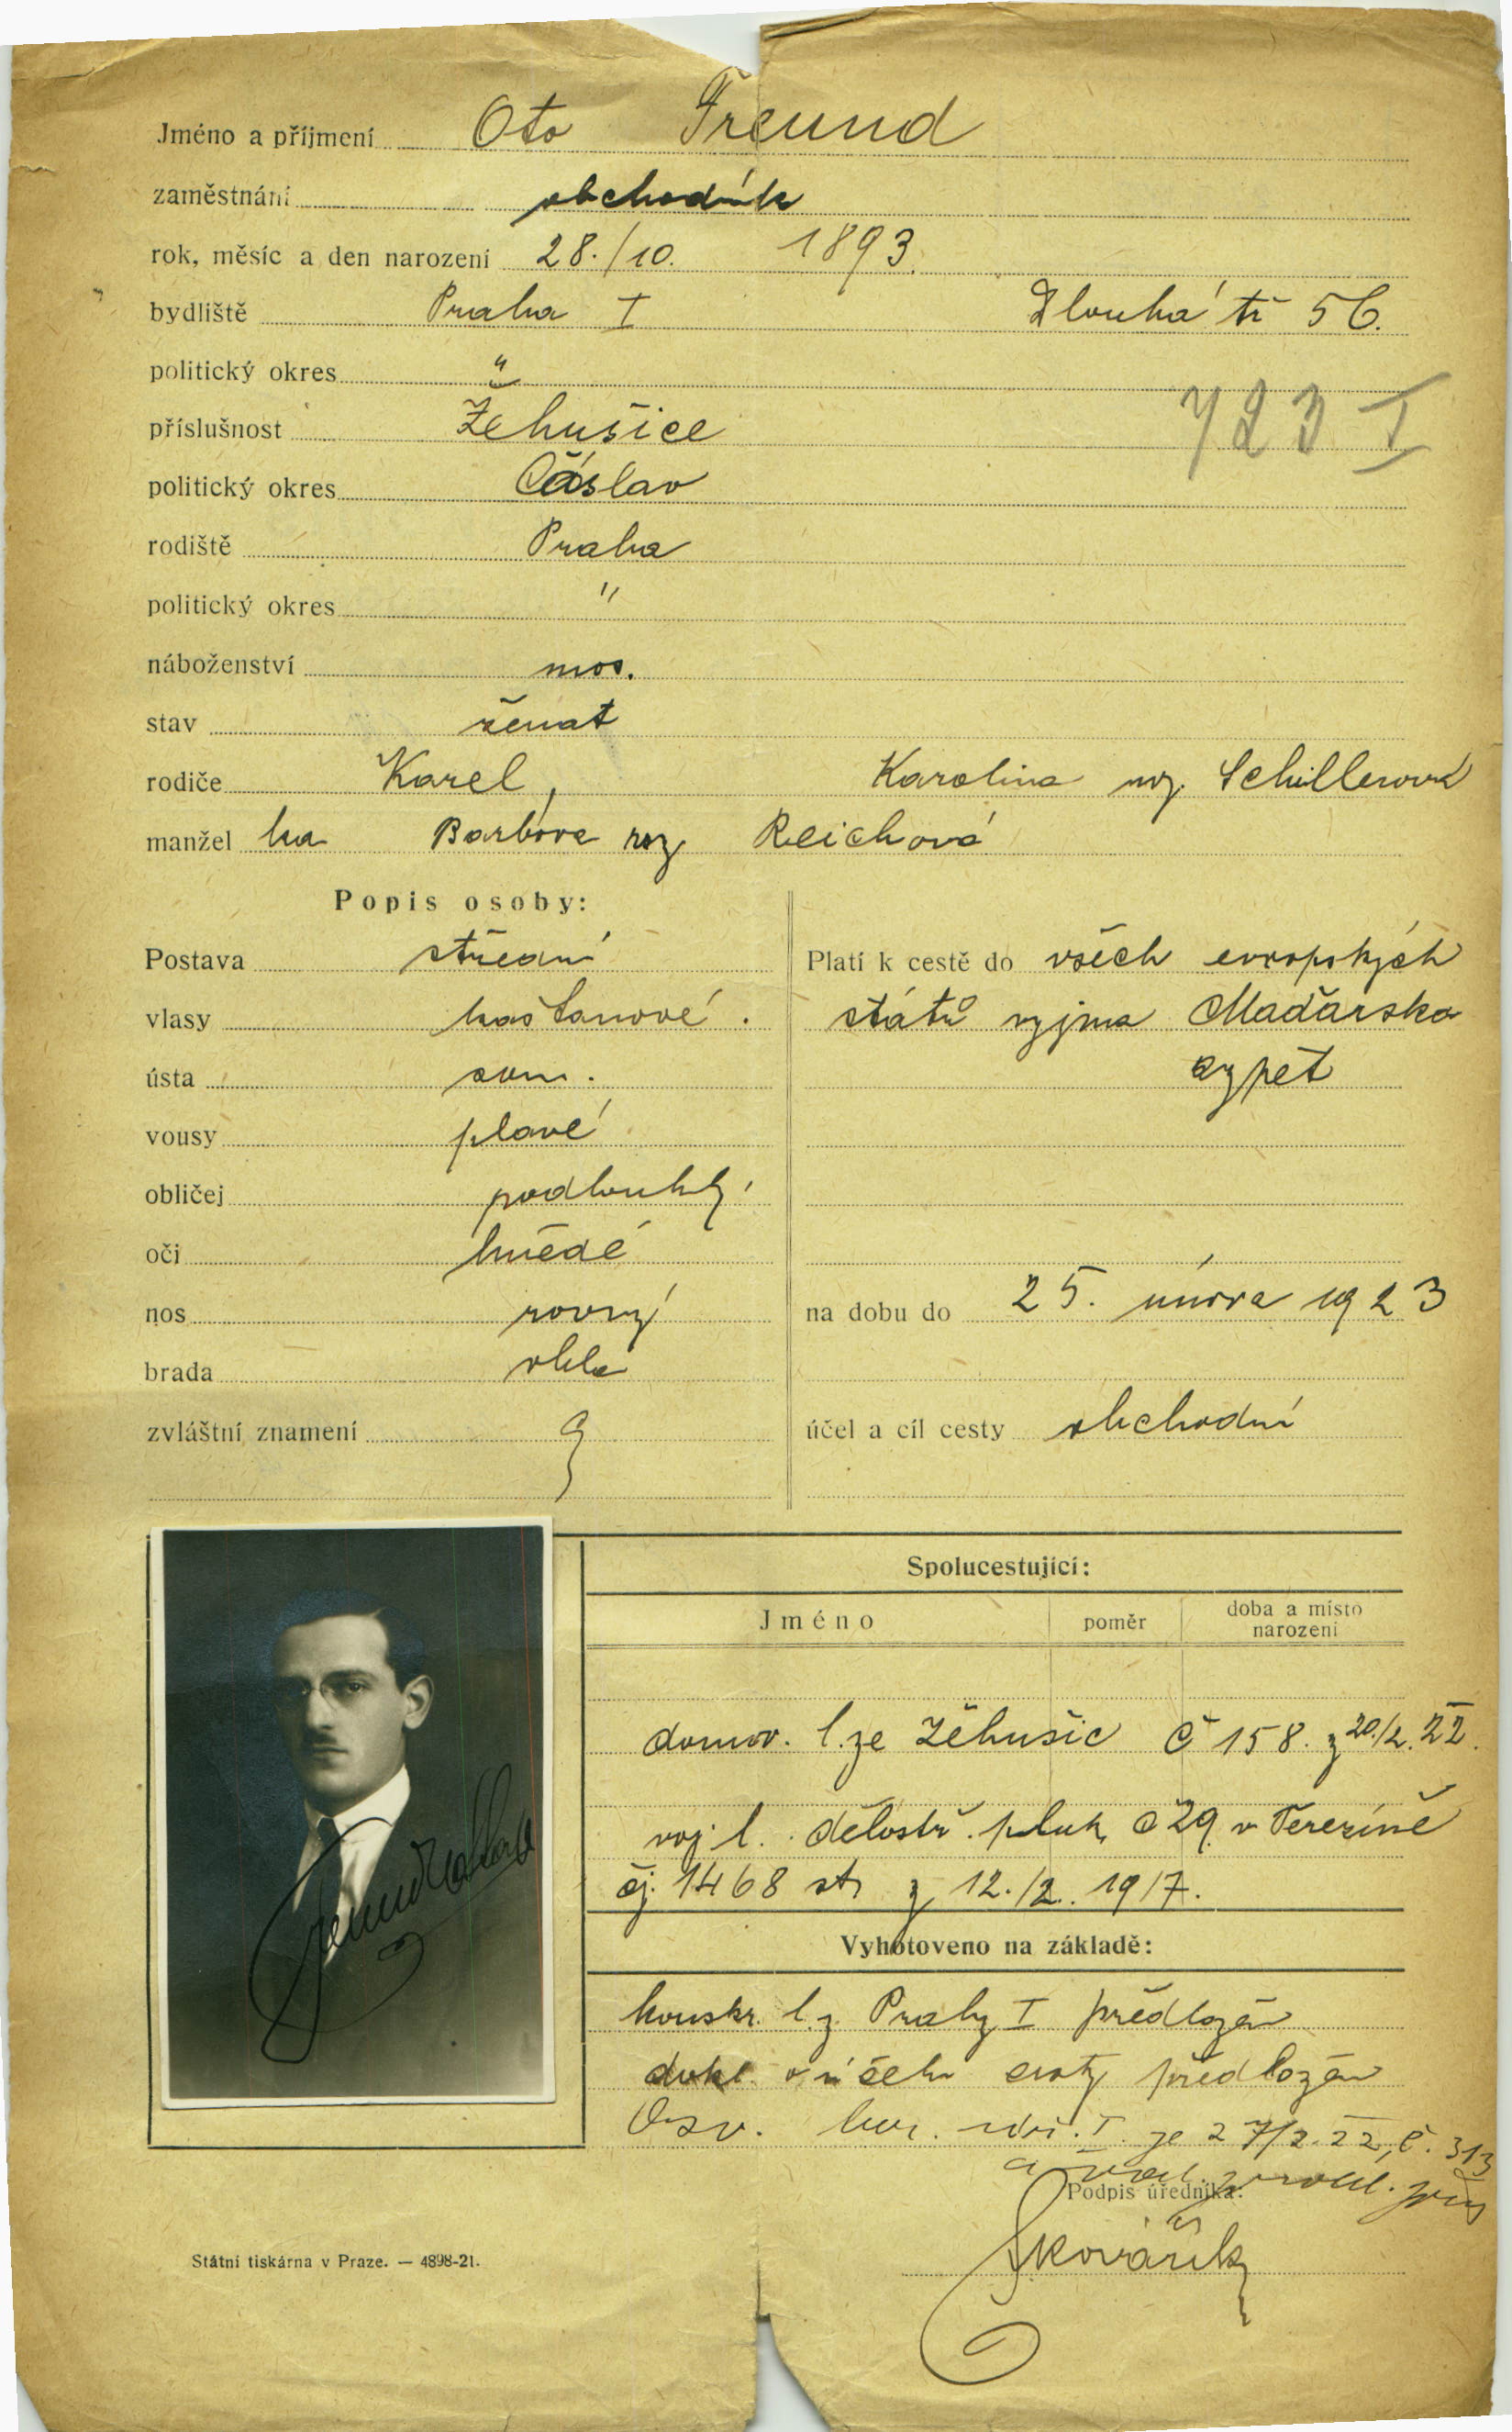 Jméno a příjmení Oto Freund
zaměstnání obchodník
rok, měsíc a den narození 28./10. 1893.
bydliště Praha I Dlouhá tř 56.
politický okres "
723 I
příslušnost Žehušice
politický okres Čáslav
rodiště Praha
politický okres "
náboženství mos.
stav ženat
rodiče Karel, Karolina roz. Schillerová
manžel ka Barbora roz Reichová
Popis osoby:
Postava střední
vlasy kaštanové.
ústa soum.
vousy plavé
obličej podlouhlý
oči hnědé
nos rovný
brada obla
zvláštní znamení
Platí k cestě do všech evropských
států vyjma Maďarska
zpět
na dobu do 25. února 1923
účel a cíl cesty obchodní
Spolucestující:
Jméno poměr doba a místo narození
domov. l. ze Žehušic č 158. z 20./2. 22.
voj. l. dělostř. pluk č 29. v Terezíně
čj. 1468 z 12./2. 1917.
Vyhotoveno na základě:
konskr. l. z. Prahy I předložen
dokl. o účelu cesty předložen
Osv. ber. I. ze 27/2. 22, č. 313
Podpis úředníka:
Státní tiskárna v Praze. — 4898-21.